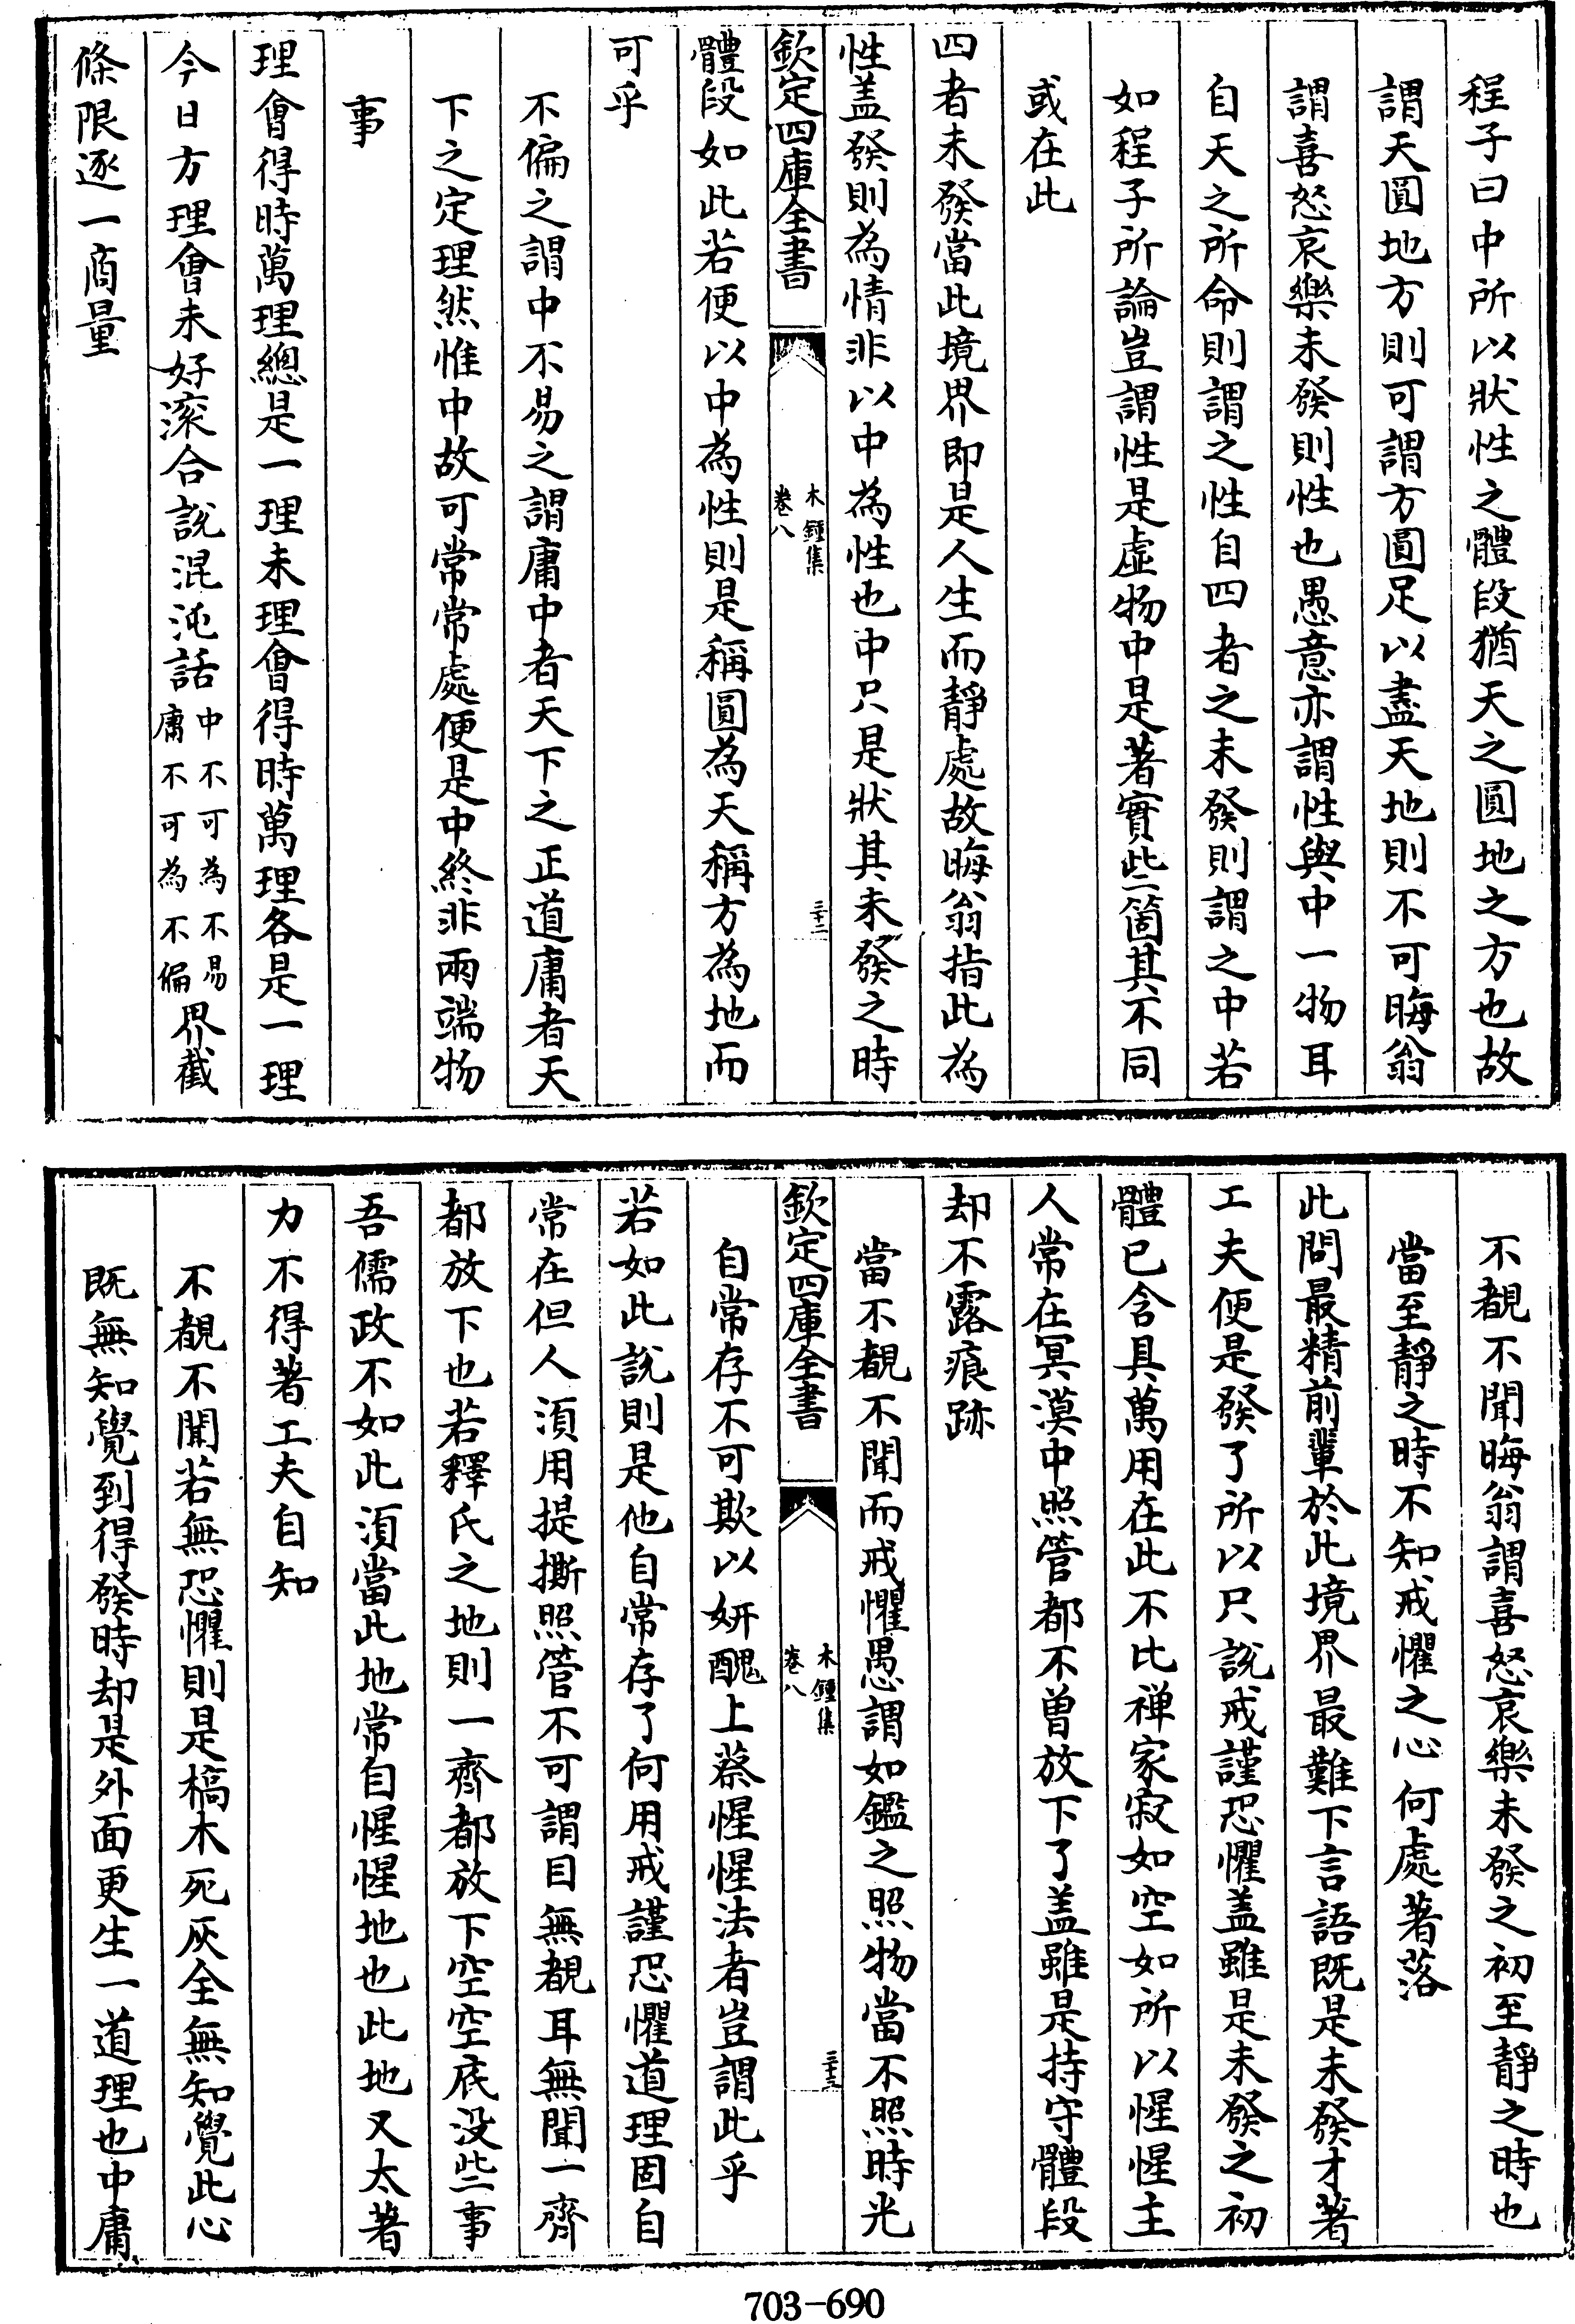 程子曰中所以狀性之體段猶天之圓地之方也故
謂天圓地方則可謂方圓足以盡天地則不可晦翁
謂喜怒哀樂未發則性也愚意亦謂性與中一物耳
自天之所命則謂之性自四者之未發則謂之中若
如程子所論豈謂性是虛物中是著實些箇其不同
或在此
四者未發當此境界即是人生而靜處故晦翁指此為
性盖發則為情非以中為性也中只是狀其未發之時
欽定四庫全書
木鍾集
卷八
三十二
體段如此若便以中為性則是稱圓為天稱方為地而
可乎
不偏之謂中不易之謂庸中者天下之正道庸者天
下之定理然惟中故可常常處便是中終非兩端物
事
理會得時萬理總是一理未理會得時萬理各是一理
今日方理會未好滚合說混沌話中不可為不易庸不可為不偏界截
條限逐一商量
不覩不聞晦翁謂喜怒哀樂未發之初至靜之時也
當至靜之時不知戒懼之心何處著落
此問最精前輩於此境界最難下言語既是未發才著
工夫便是發了所以只說戒謹恐懼盖雖是未發之初
體已含具萬用在此不比禅家寂如空如所以惺惺主
人常在冥漠中照管都不曾放下了盖雖是持守體段
却不露痕跡
當不覩不聞而戒懼愚謂如鑑之照物當不照時光
欽定四庫全書
木鍾集
卷八
三十三
自常存不可欺以妍醜上蔡惺惺法者豈謂此乎
若如此說則是他自常存了何用戒謹恐懼道理固自
常在但人須用提撕照管不可謂目無覩耳無聞一齊
都放下也若釋氏之地則一齊都放下空空底没些事
吾儒政不如此須當此地常自惺惺地也此地又太著
力不得著工夫自知
不覩不聞若無恐懼則是槁木死灰全無知覺此心
既無知覺到得發時却是外面更生一道理也中庸
703-690